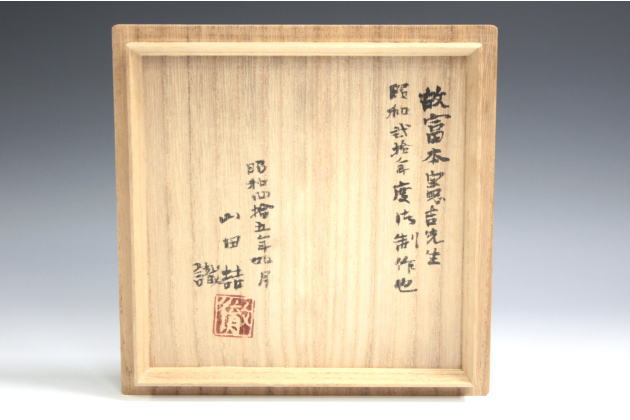 故富本憲吉先生
昭和弐拾年度御制作也
昭和四拾五年如月
山田喆
識